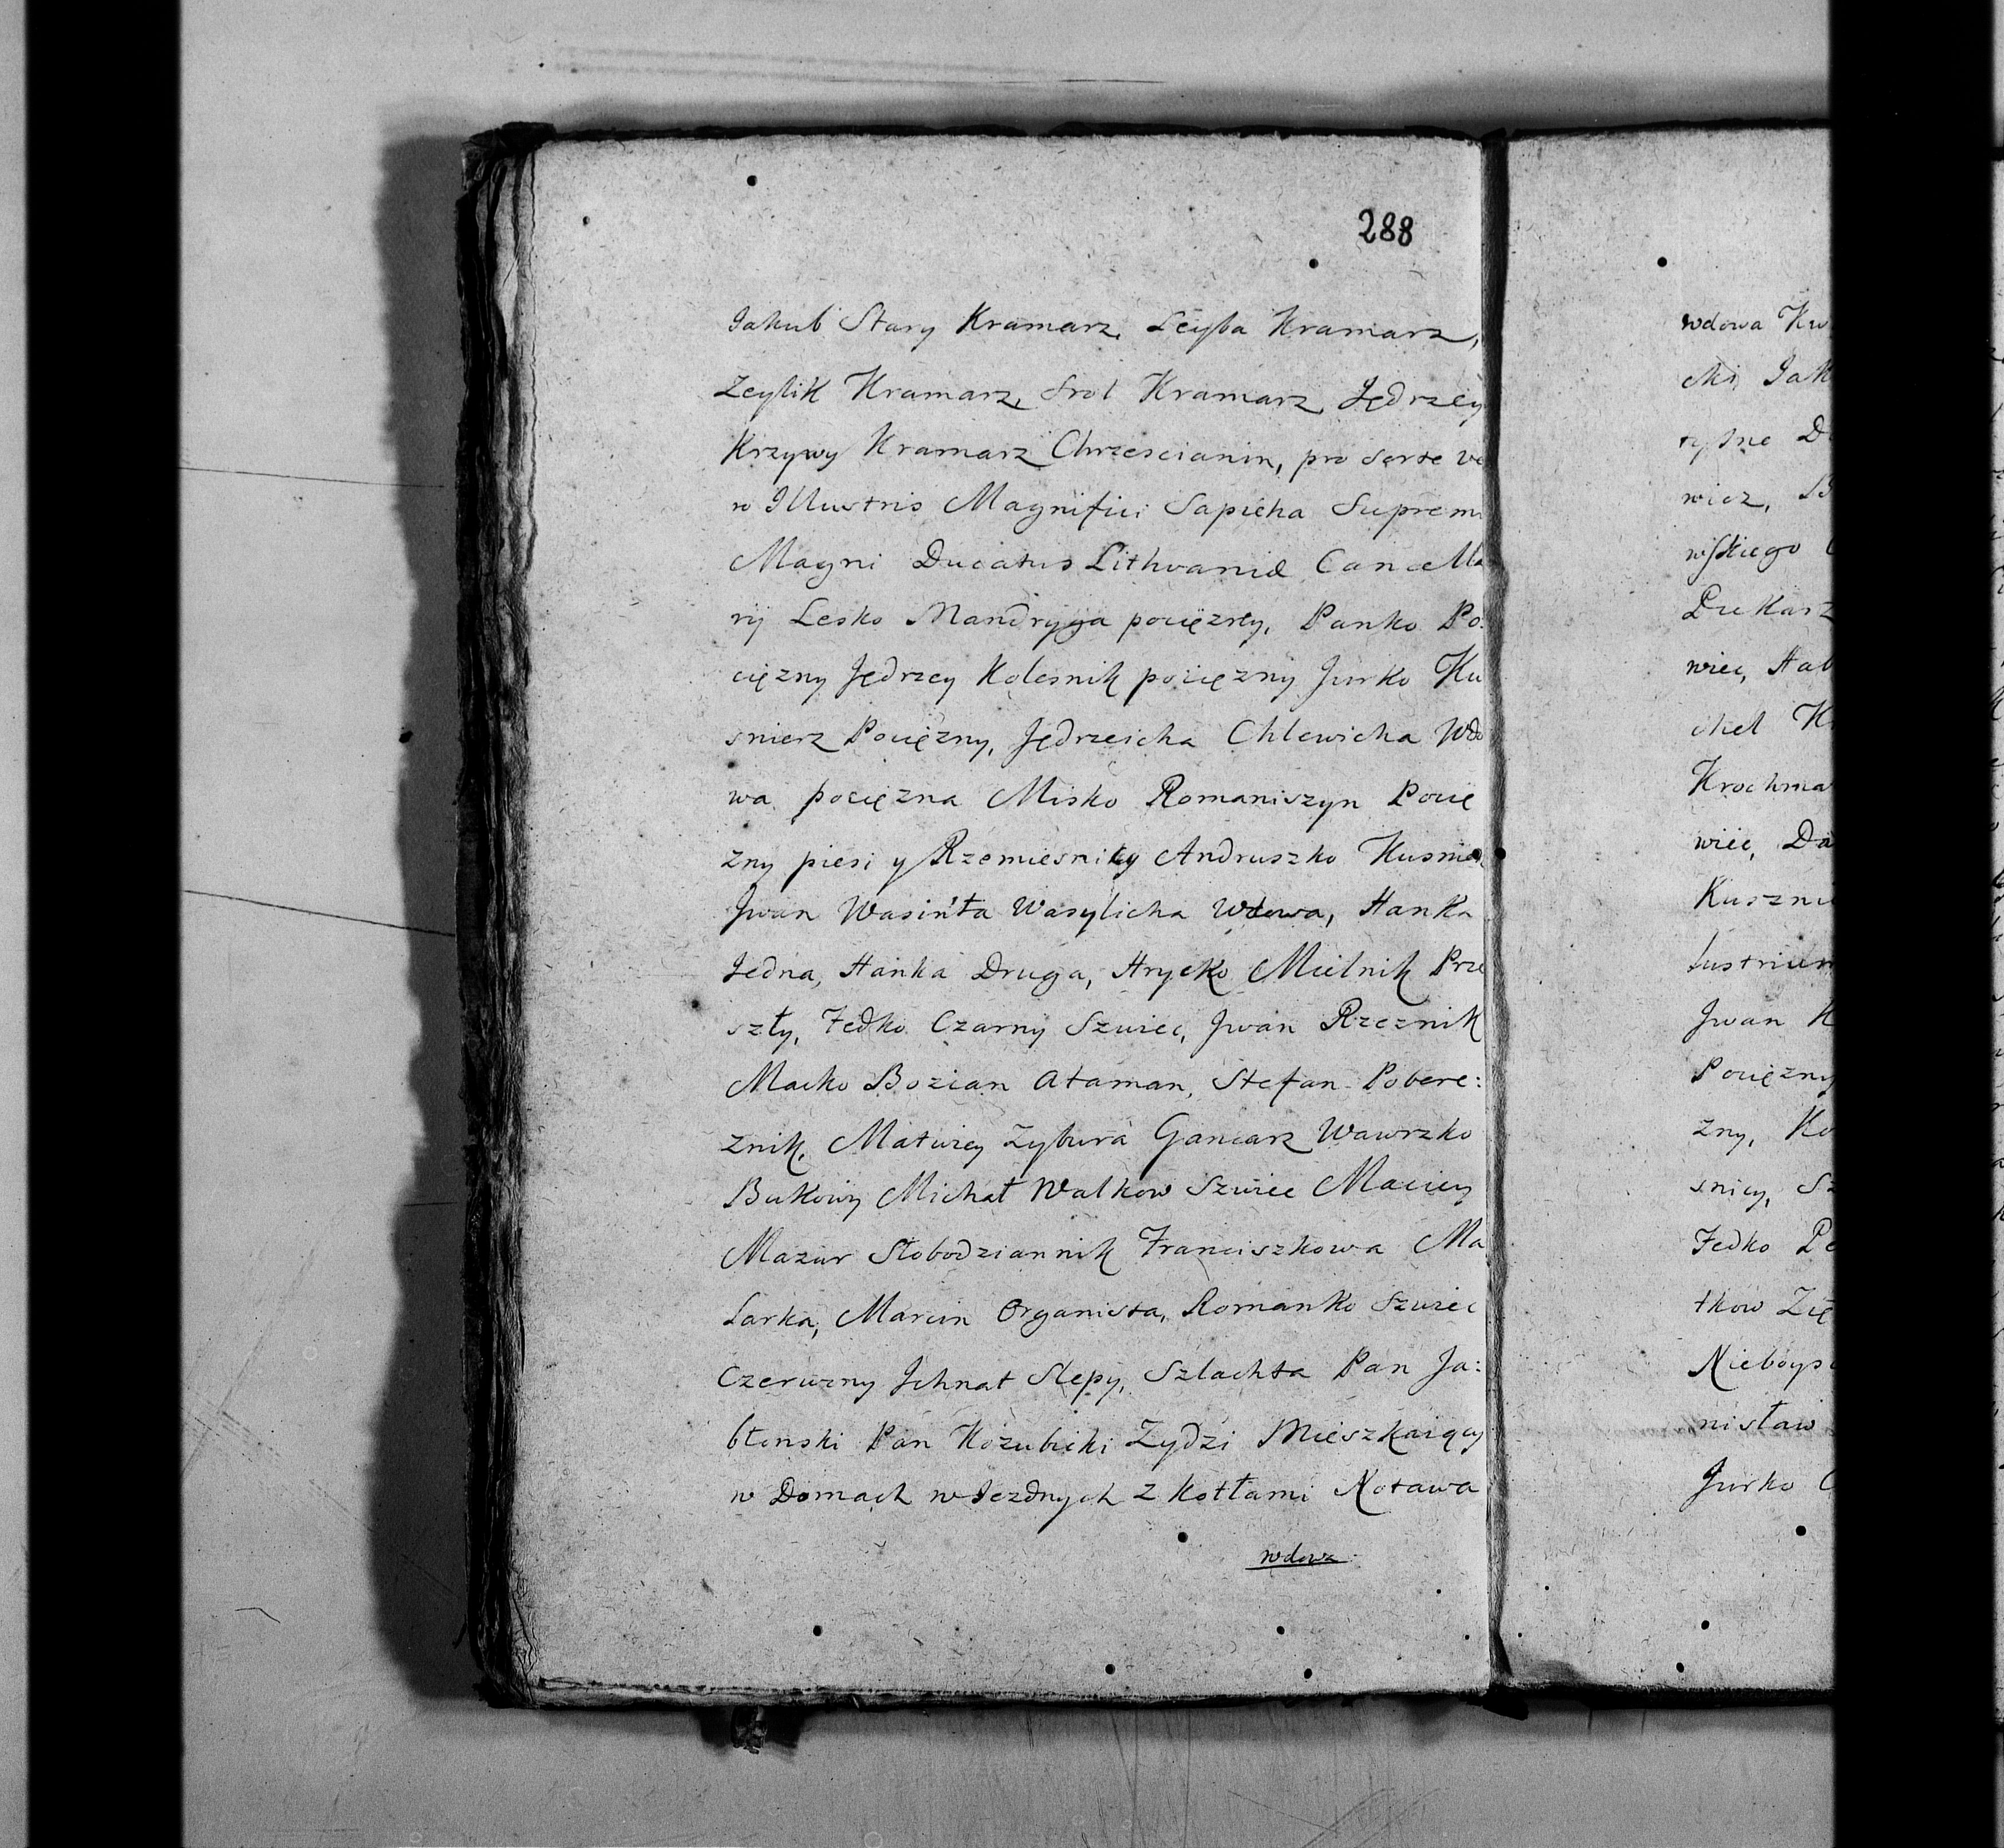 288
Jakub Stary Kramarz, Leyba Kramarz,
Zeylik Kramarz, Srol Kramarz, Jędrzey
Krzywy Kramarz Chrzescianin, pro sorte ve
ro Illustris Magnifici Sapieha Supremi
Magni Ducatus Lithvaniæ Cancella
rij Lesko Mandryga pociężny, Panko Po:
ciężny Jędrzey Kolesnik pociężny Jurko Ku
snierz Pociężny, Jędrzeicha Chlewicha Wdo
wa pociężna Misko Romaniszyn Pocię
żny piesi y Rzemiesnicy Andruszko Kusnierz
Jwan Wasińta Wasylicha Wdowa, Hanka
Jedna, Hanka Druga, Hrycko Mielnik Prze
szły, Fedko Czarny Szwiec, Jwan Rzeznik
Macko Bozian Ataman, Stefan Pobere:
znik, Matwiey Zybura Gancarz Wawrzko
Bukowy Michał Walkow Szwiec Maciey
Mazur Słobodziannik Franciszkowa Ma
larka, Marcin Organista, Romanko Szwiec
Czerwony Jhnat Slepy, Szlachta Pan Ja:
błonski Pan Kozubicki Zydzi Mieszkaiący
w Domach wjezdnych z kotłami Notawa
wdowa
wdowa
cki Jak
wicz,
wskiego
Piekarz
wiec,
chel
Krochma
wiec,
Kuszni
lustrium
Jwan
Pociężny
zny,
snicy,
Fedko
tkow
nisław
Jurko